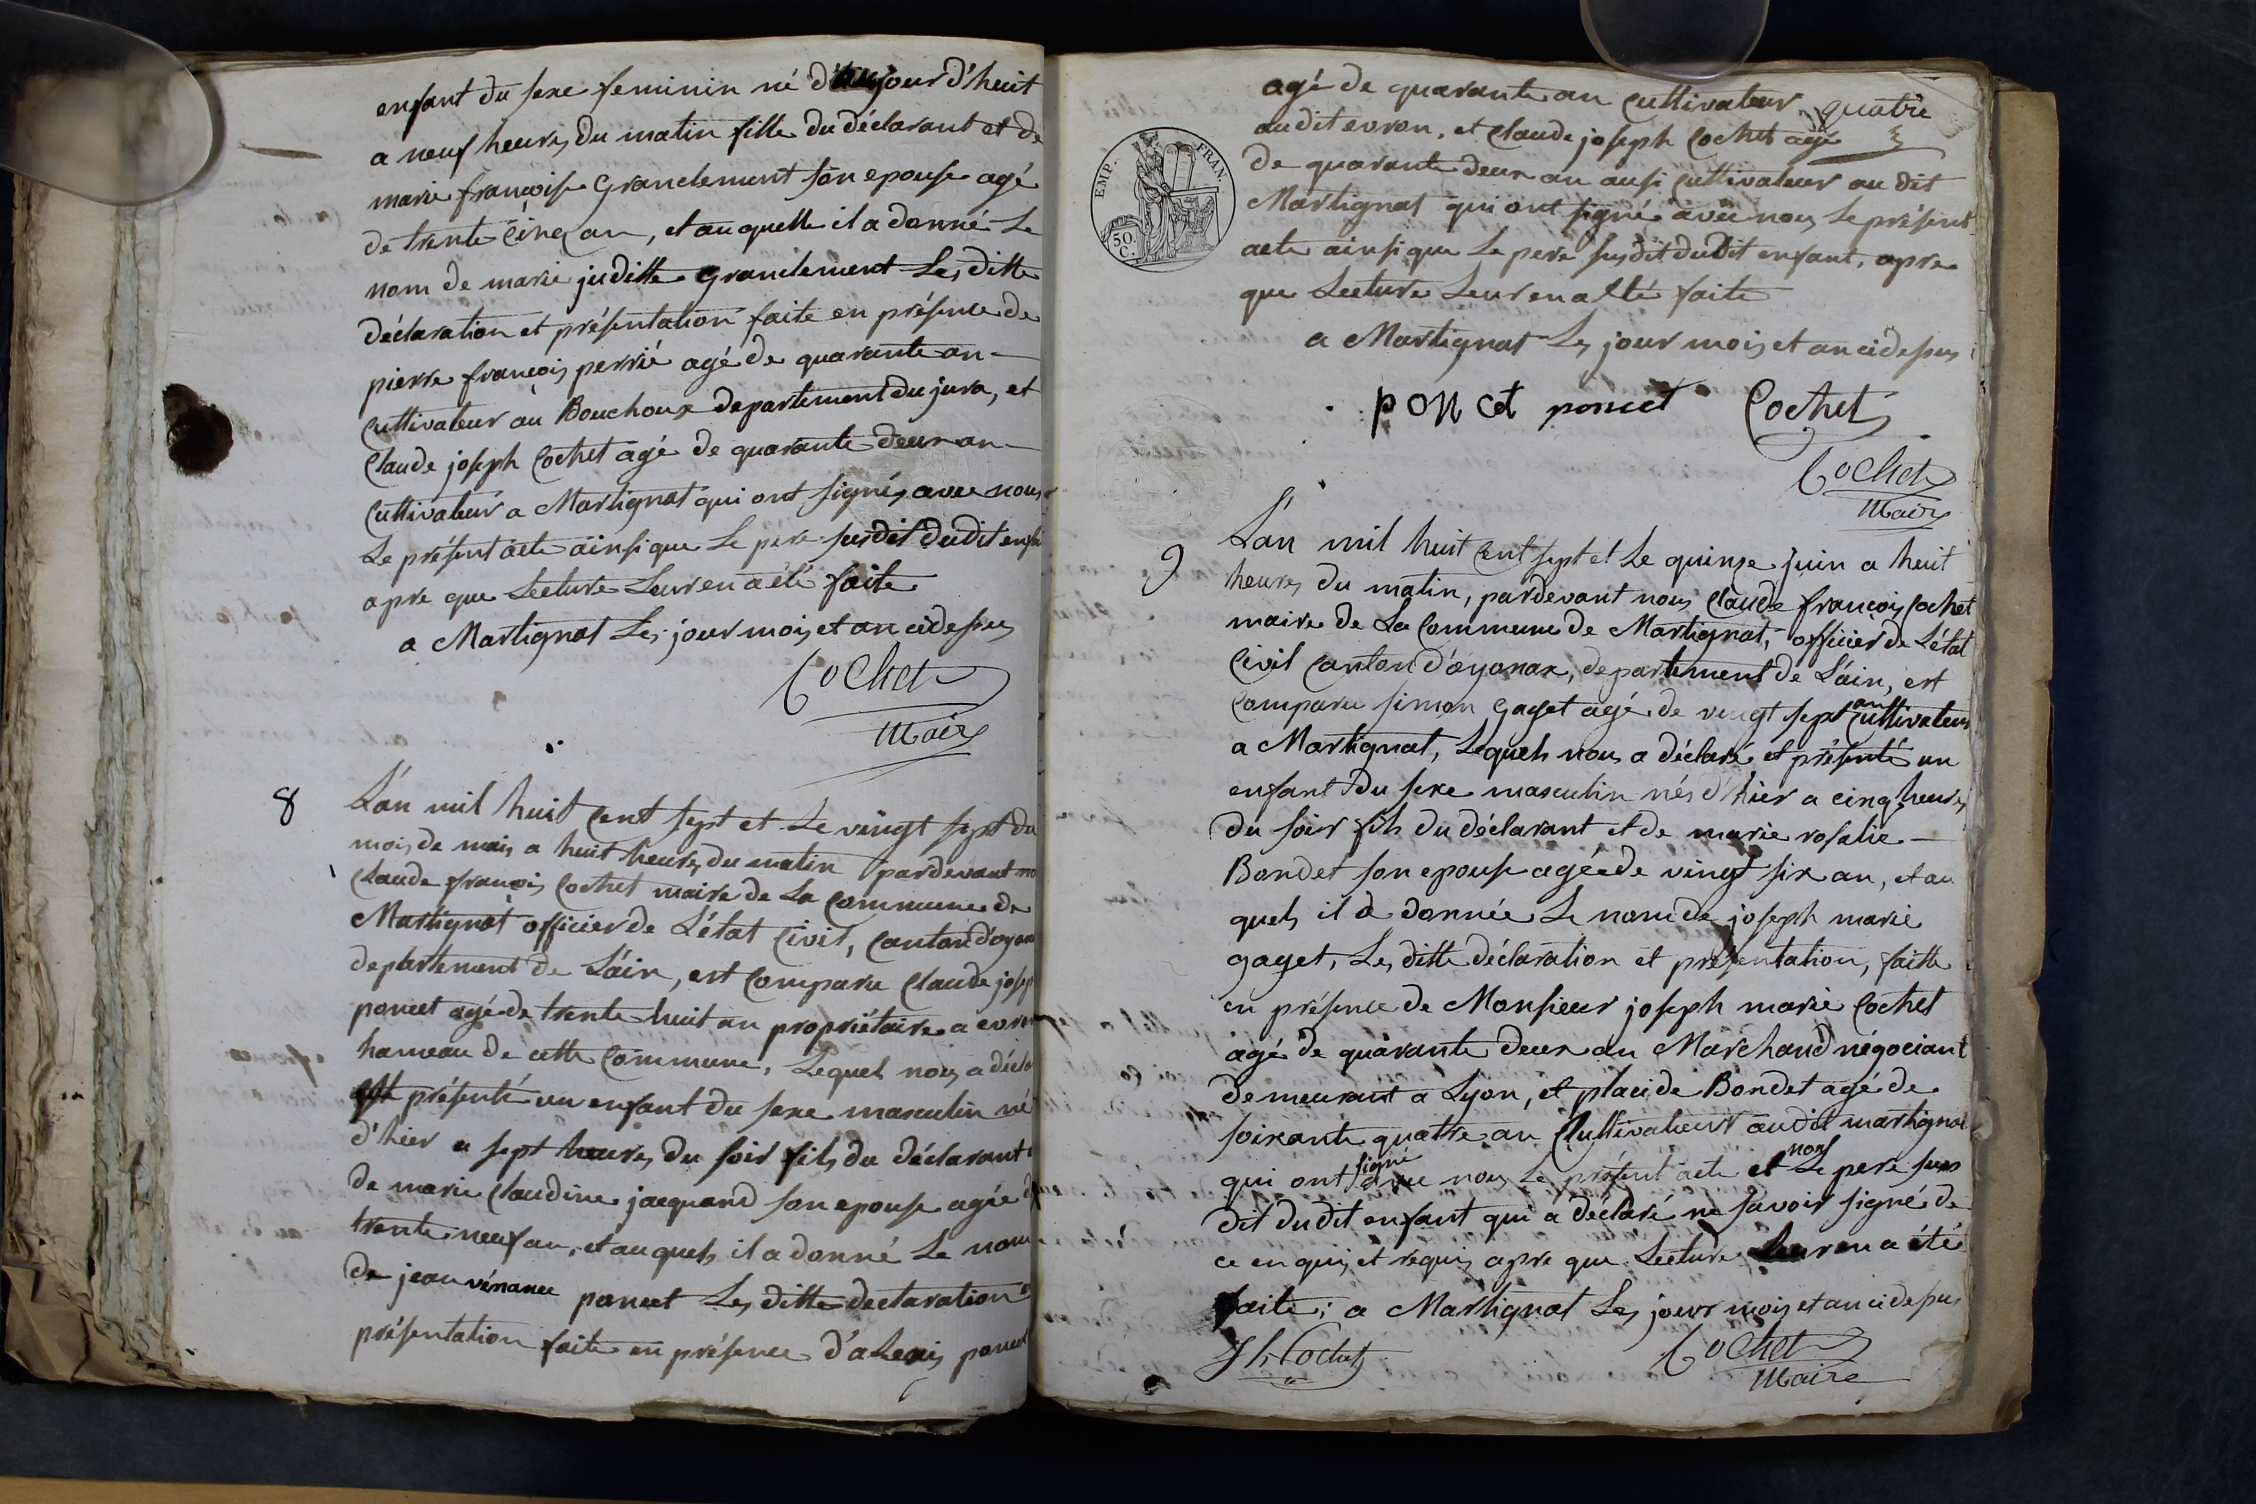 enfant du sexe feminin né d'aujourd'huit
a neuf heures du matin fille du déclarant et de
marie françoise Grandement son epouse agé
de trente cinq an, et au quelle il a donné Le
nom de marie juditte Grandement Les ditte
déclaration et présentation faite en présence de
pierre françois perrié agé de quarante an
Cultivateur au Bouchoux departement du jura, et
Claude joseph Cochet agé de quarante deux an
Cultivateur a Martignat qui ont signés avec nous
Le présent acte ainsi que Le pere susdit dudit enfa
apre que Lecture Leur en a été faite
a Martignat Les jour mois et an cidessus
Cochet
Maire
8
L'an mil huit Cent sept et Le vingt sept du
mois de mais a huit heures du matin pardevant no
Claude françois Cochet maire de La Commune de
Martignat officier de L'état Civil, Canton d'oyona
departement de L'ain, est Comparu Claude josep
poncet agé de trente huit an propriétaire a evron
hameau de cette Commune, Lequel nous a décla
et présenté un enfant du sexe masculin né
d'hier a sept heures du soir fils du déclarant
de marie Claudine jacquand son epouse agée d
trente neuf an, et au quels il a donné Le nom
de jean vénance poncet Les ditte declaration
présentation faite en présence d'alexis poncet
quatre
agé de quarante an Cultivateur
audit evron, et Claude joseph Cochet agé
de quarante deux an ausi Cultivateur au dit
Martignat qui ont signé avec nous Le présent
acte ainsi que Le pere susdit dudit enfant, apre
que Lecture Leur en a été faite
a Martignat Les jour mois et an cidessus
EMP. FRAN.
50.
C.
poncet poncet Cochet
Cochet
Maire
9
L'an mil huit Cent sept et Le quinze juin a huit
heures du matin, pardevant nous Claude françois Cochet
maire de La Commune de Martignat, officier de L'état
Civil Canton d'oyonax, departement de L'ain, est
Comparu simon gaget agé de vingt sept an Cultivateur
a Martignat, Lequels nous a déclaré et présenté un
enfant du sexe masculin nés d'hier a cinq heures
du soir fils du déclarant et de marie rosalie
Bondet son epouse agée de vingt six an, et au
quels il a donnée Le nom de joseph marie
gaget, Les ditte déclaration et présentation, faitte
en présence de Monsieur joseph marie Cochet
agé de quarante deux an Marchand négociant
demeurant a Lyon, et placide Bondet agé de
soixante quattre an Cultivateur audit martignat
qui ont signé avec nous Le présent acte et non Le pere sus
dit dudit enfant qui a déclaré ne savoir signé de
ce enquis et requis apre que Lecture Leur en a été
faite; a Martignat Les jour mois et an cidessus
Cochet
Cochet
Maire